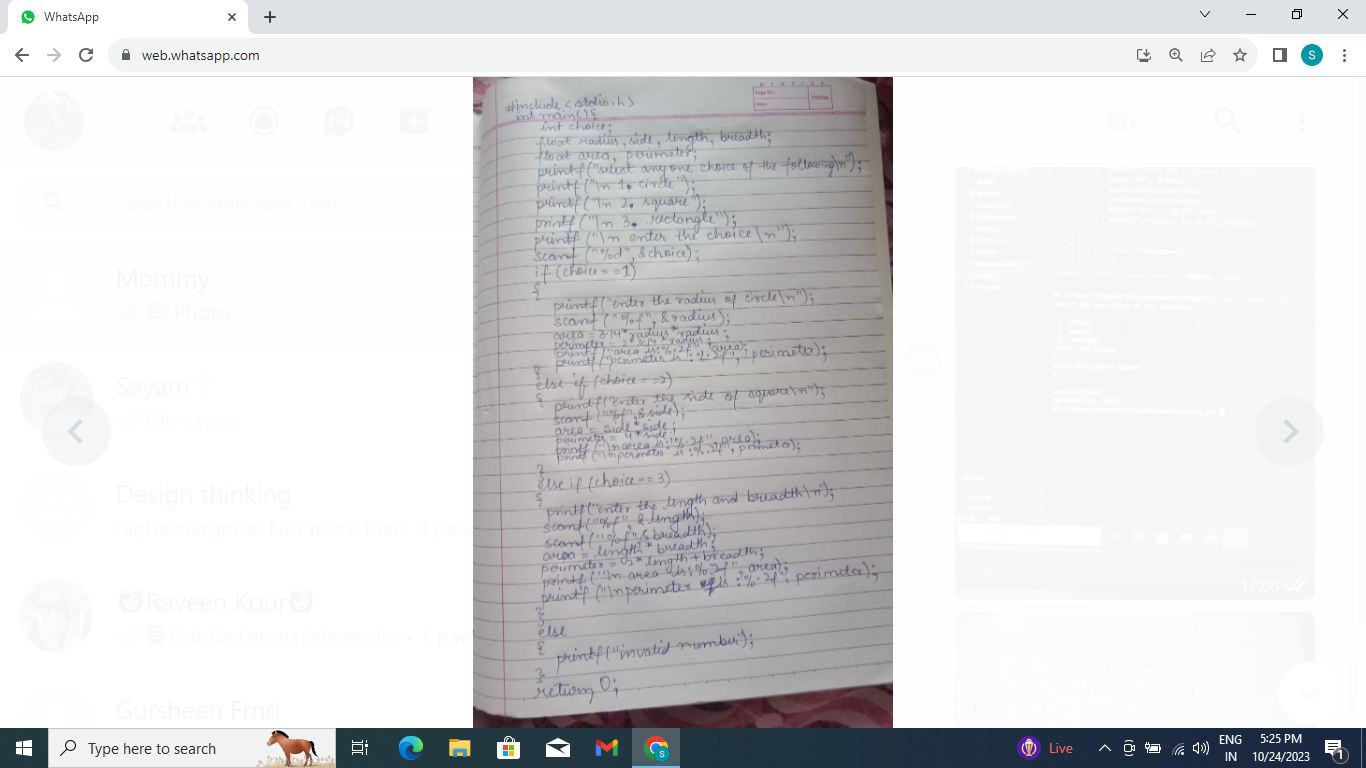 WhatsApp
web.whatsapp.com
S
Search or start new chat
Mommy
Photo
Sayam
Hlo sayam
Design thinking
raghavnargotra: Not more than 3 peo
Raveen Kour
Untitled spreadsheet.xlsx • 1 pag
Gursheen Frnd
Page No.:
Date:
YOUVA
#include <stdio.h>
int main(){
int choice;
float radius, side, length, breadth;
float area, perimeter;
printf("select any one choice of the following\n");
printf("\n 1. circle");
printf("\n 2. square");
printf("\n 3. rectangle");
printf("\n enter the choice \n");
scanf ("%d", &choice);
if (choice==1)
{
printf("enter the radius of circle\n");
scanf ("%f", &radius);
area = 3.14*radius*radius;
perimeter = 2*3.14*radius;
printf("area is:%.2f", area);
printf("perimeter is :%.2f", perimeter);
}
else if (choice==2)
{
printf("enter the side of square\n");
scanf ("%f", &side);
area = side*side;
perimeter = 4*side;
printf("\n area is:%.2f", area);
printf("\n perimeter is :%.2f", perimeter);
}
else if (choice==3)
{
printf("enter the length and breadth\n");
scanf("%f", &length);
scanf("%f", &breadth);
area = length * breadth;
perimeter = 2* length+breadth;
printf("\n area is:%.2f", area);
printf ("\n perimeter is :%.2f", perimeter);
}
else
{
printf("invalid number");
}
return 0;
17:08
Type here to search
Live
ENG
IN
5:25 PM
10/24/2023
1